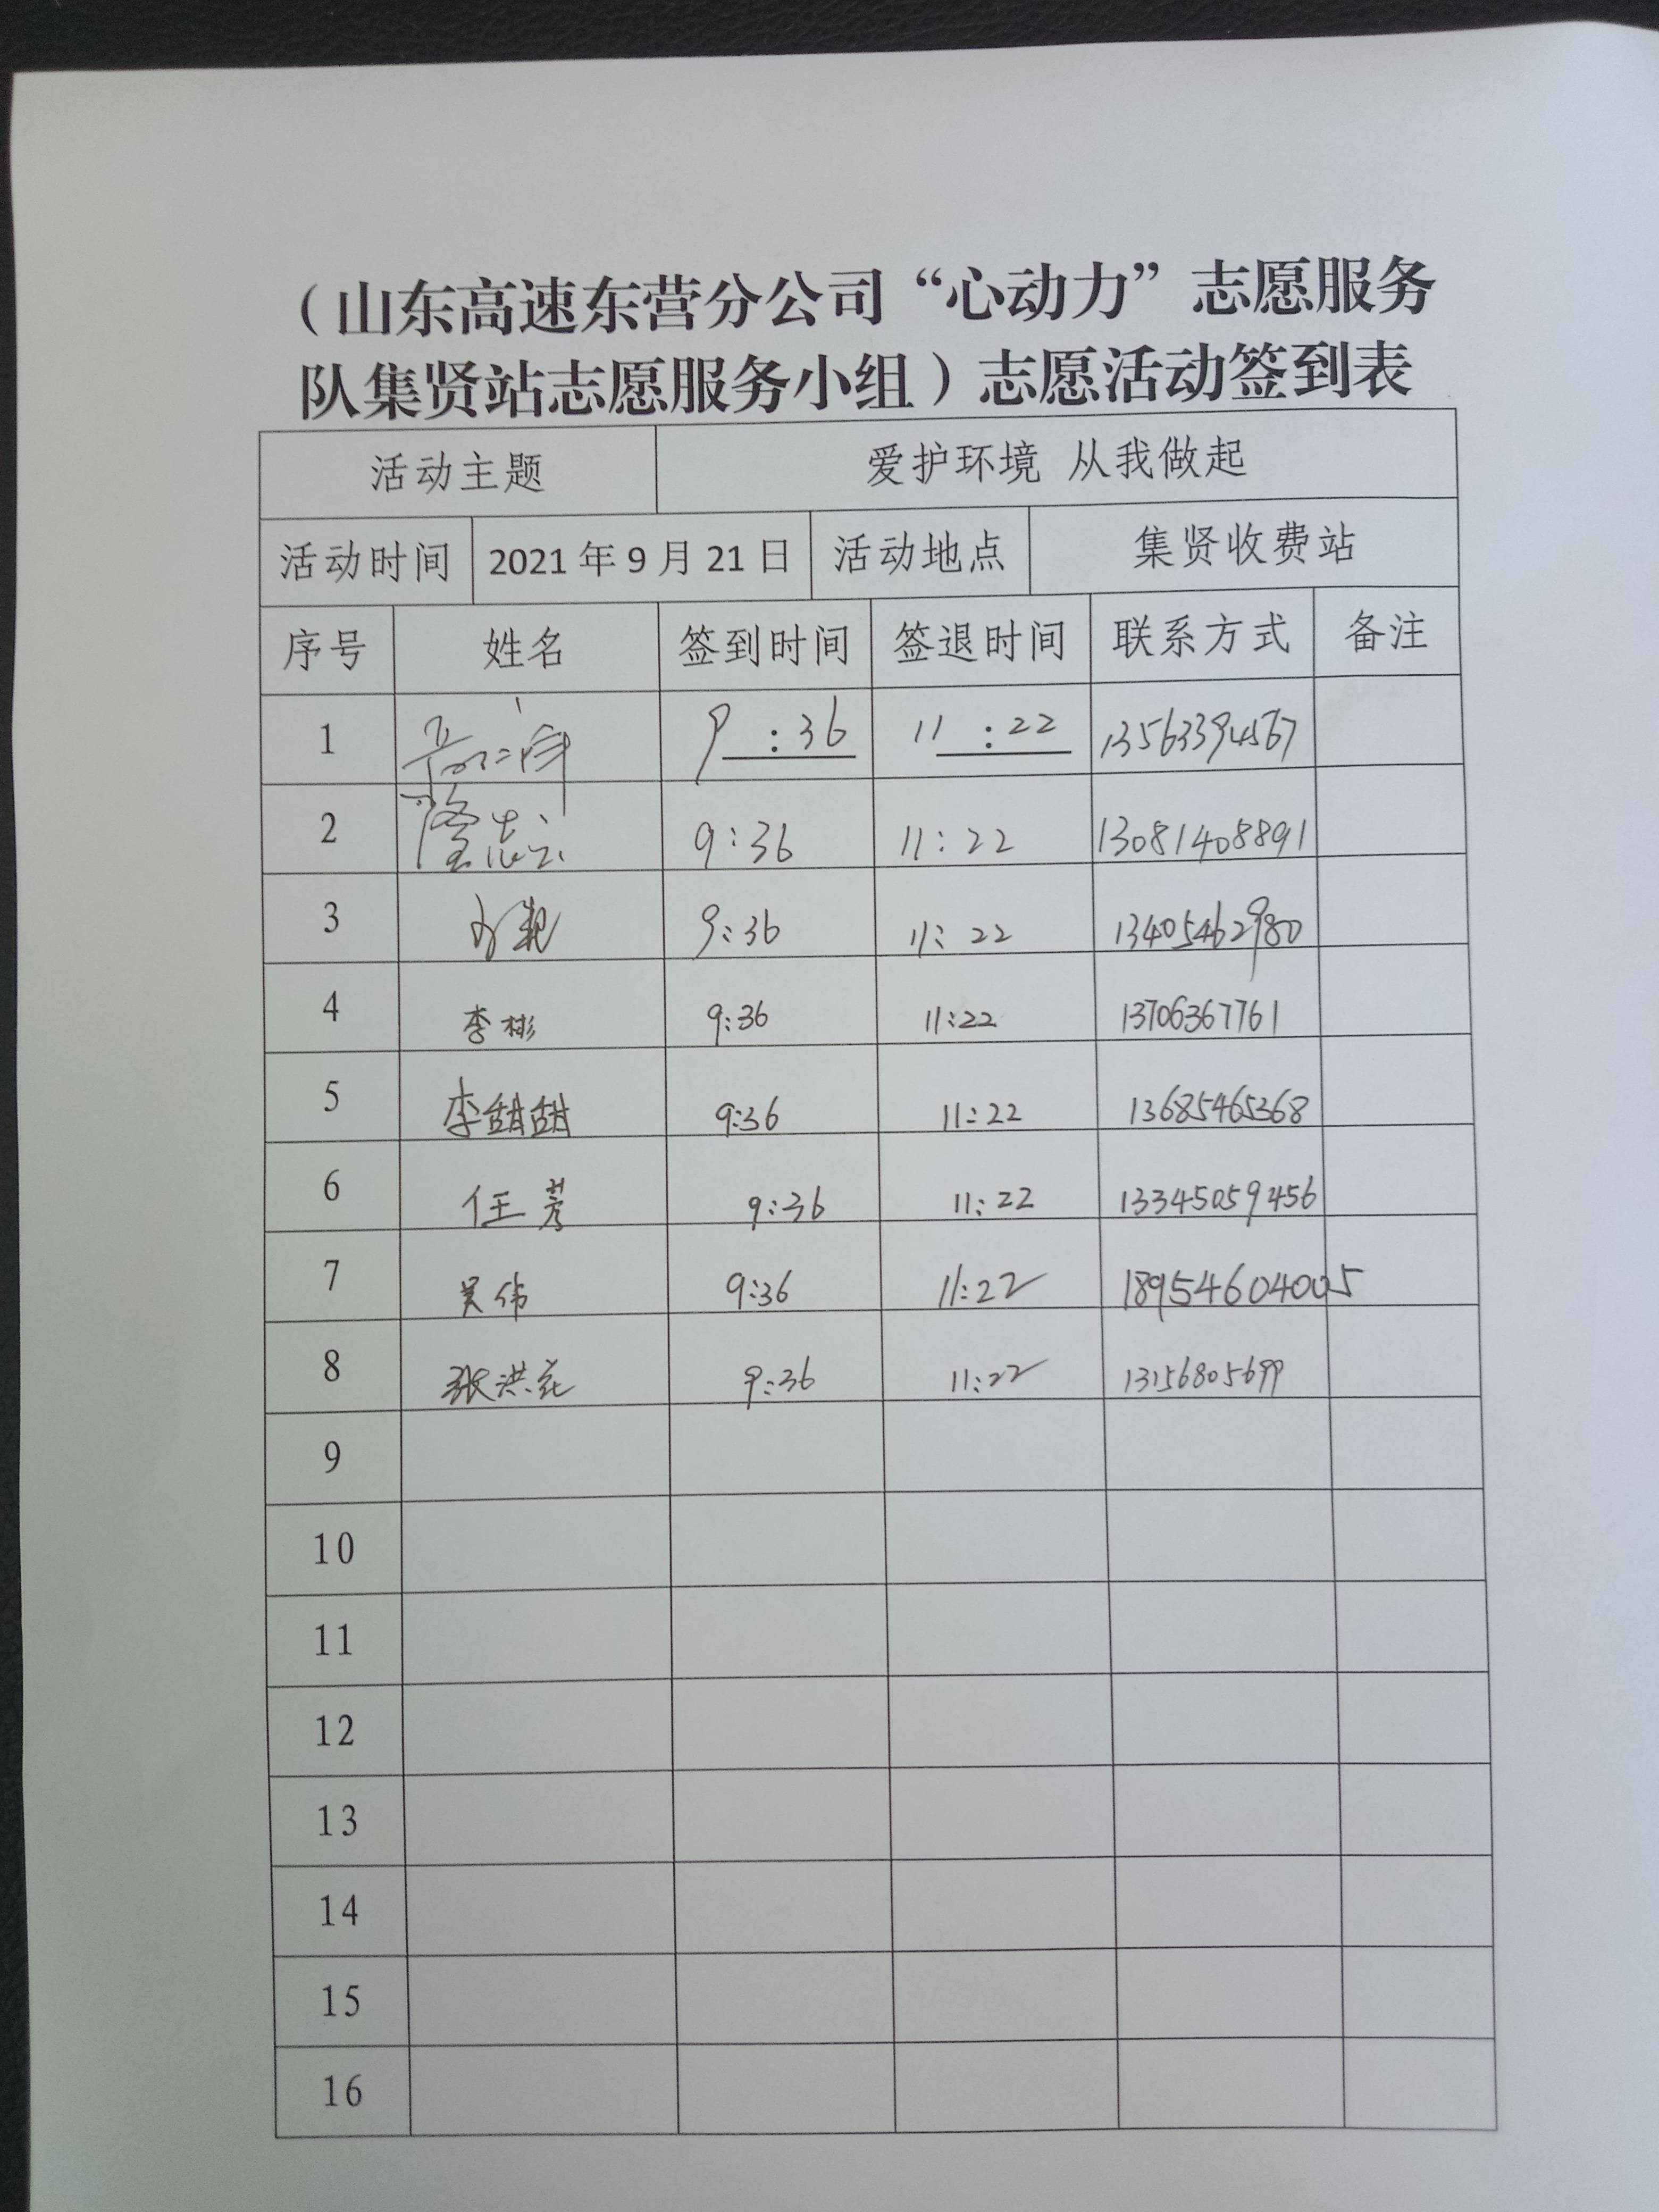 （山东高速东营分公司“心动力”志愿服务
队集贤站志愿服务小组）志愿活动签到表
活动主题 爱护环境 从我做起
活动时间 2021年9月21日 活动地点 集贤收费站
序号 姓名 签到时间 签退时间 联系方式 备注
1 9:36 11:22 13563394567
2 9:36 11:22 13081408891
3 9:36 11:22 13405462980
4 李彬 9:36 11:22 13706367761
5 李甜甜 9:36 11:22 13685465368
6 任芳 9:36 11:22 13345059456
7 吴伟 9:36 11:22 18954604005
8 张洪花 9:36 11:22 13156805699
9
10
11
12
13
14
15
16